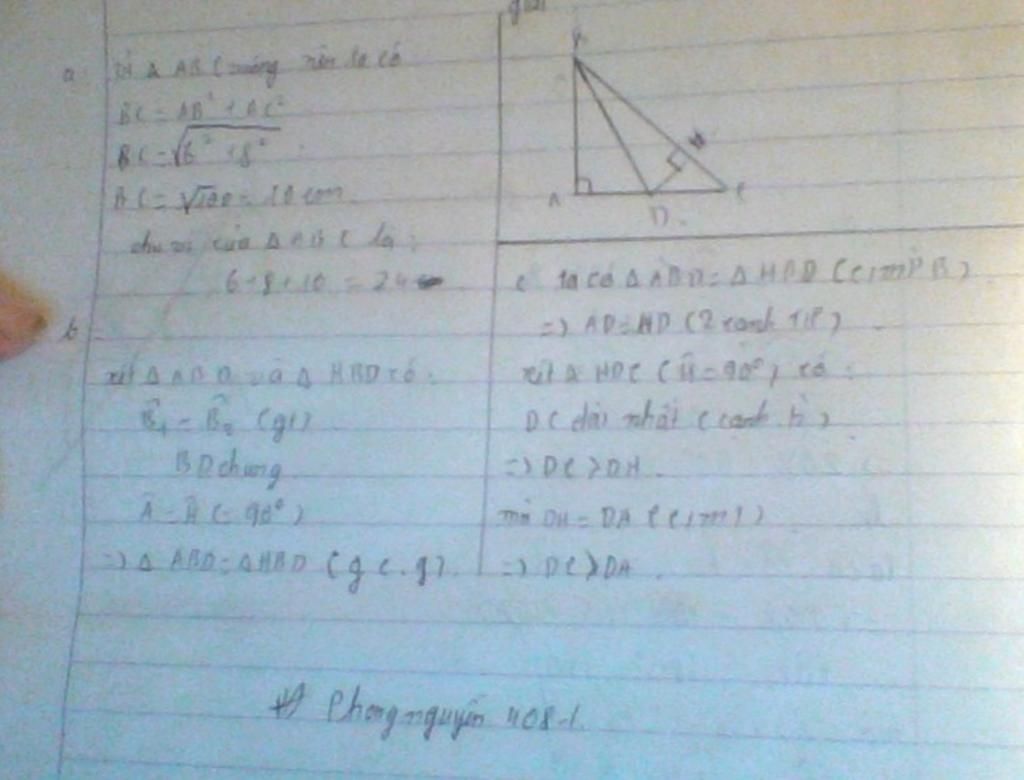 giải
a. Vì △ ABC vuông nên ta có
BC = AB² + AC²
BC = √6² + 8²
BC = √100 = 10 cm.
chu vi của △ ABC là:
6 + 8 + 10 = 24
b
xét △ ABD và △ HBD có:
B̂₁ = B̂₂ (gt)
BD chung
Â = Ĥ (= 90°)
=> △ ABD = △HBD (g.c.g).
B
H
A
D.
C
c ta có △ ABD = △ HBD (cmpB)
=> AD = HD (2 cạnh tư)
xét △ HDC (Ĥ = 90°) có:
DC dài nhất (cạnh h)
=> DC > DH.
mà DH = DA (cmt)
=> DC > DA.
Phongnguyễn 408-1.